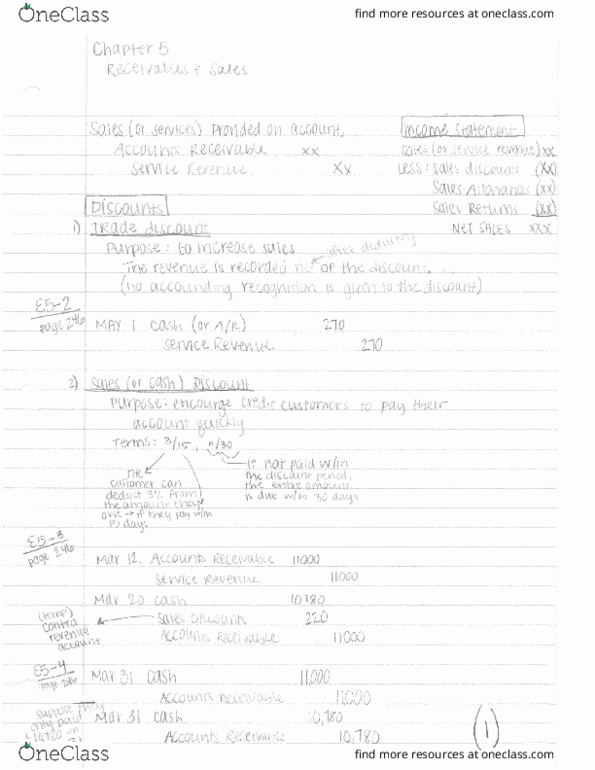 OneClass
find more resources at oneclass.com
Chapter 5
Receivables + Sales
Sales (or services) provided on account,
Accounts Receivable xx
Service Revenue xx
Income Statement
Sales (or service revenue) xx
Less: Sales discounts (xx)
Sales Allowances (xx)
Sales Returns (xx)
NET SALES xxx
Discounts
1) Trade discount
Purpose: to increase sales
after deducting
The revenue is recorded net of the discount.
(no accounting recognition is given to the discount)
E5-2
page 246
MAY 1 Cash (or A/R) 270
Service Revenue 270
2) Sales (or cash) Discount
Purpose: encourge credit customers to pay their
account quickly
Terms: 3/15, n/30
The
customer can
deduct 3% from
the amount they
owe → if they pay w/in
15 days
If not paid w/in
the discount period,
the entire amount
is due w/in 30 days
E5-3
page 246
Mar 12. Accounts Receivable 11000
Service Revenue 11000
Mar 20 Cash 10780
Sales Discounts 220
Accounts Receivable 11000
contra
revenue
account
E5-4
page 246
Mar 31 Cash 11,000
Accounts Receivable 11,000
suppose they
only paid
10,780 on
Mar 31 Cash 10,780
Accounts Receivable 10,780
(1)
OneClass
find more resources at oneclass.com